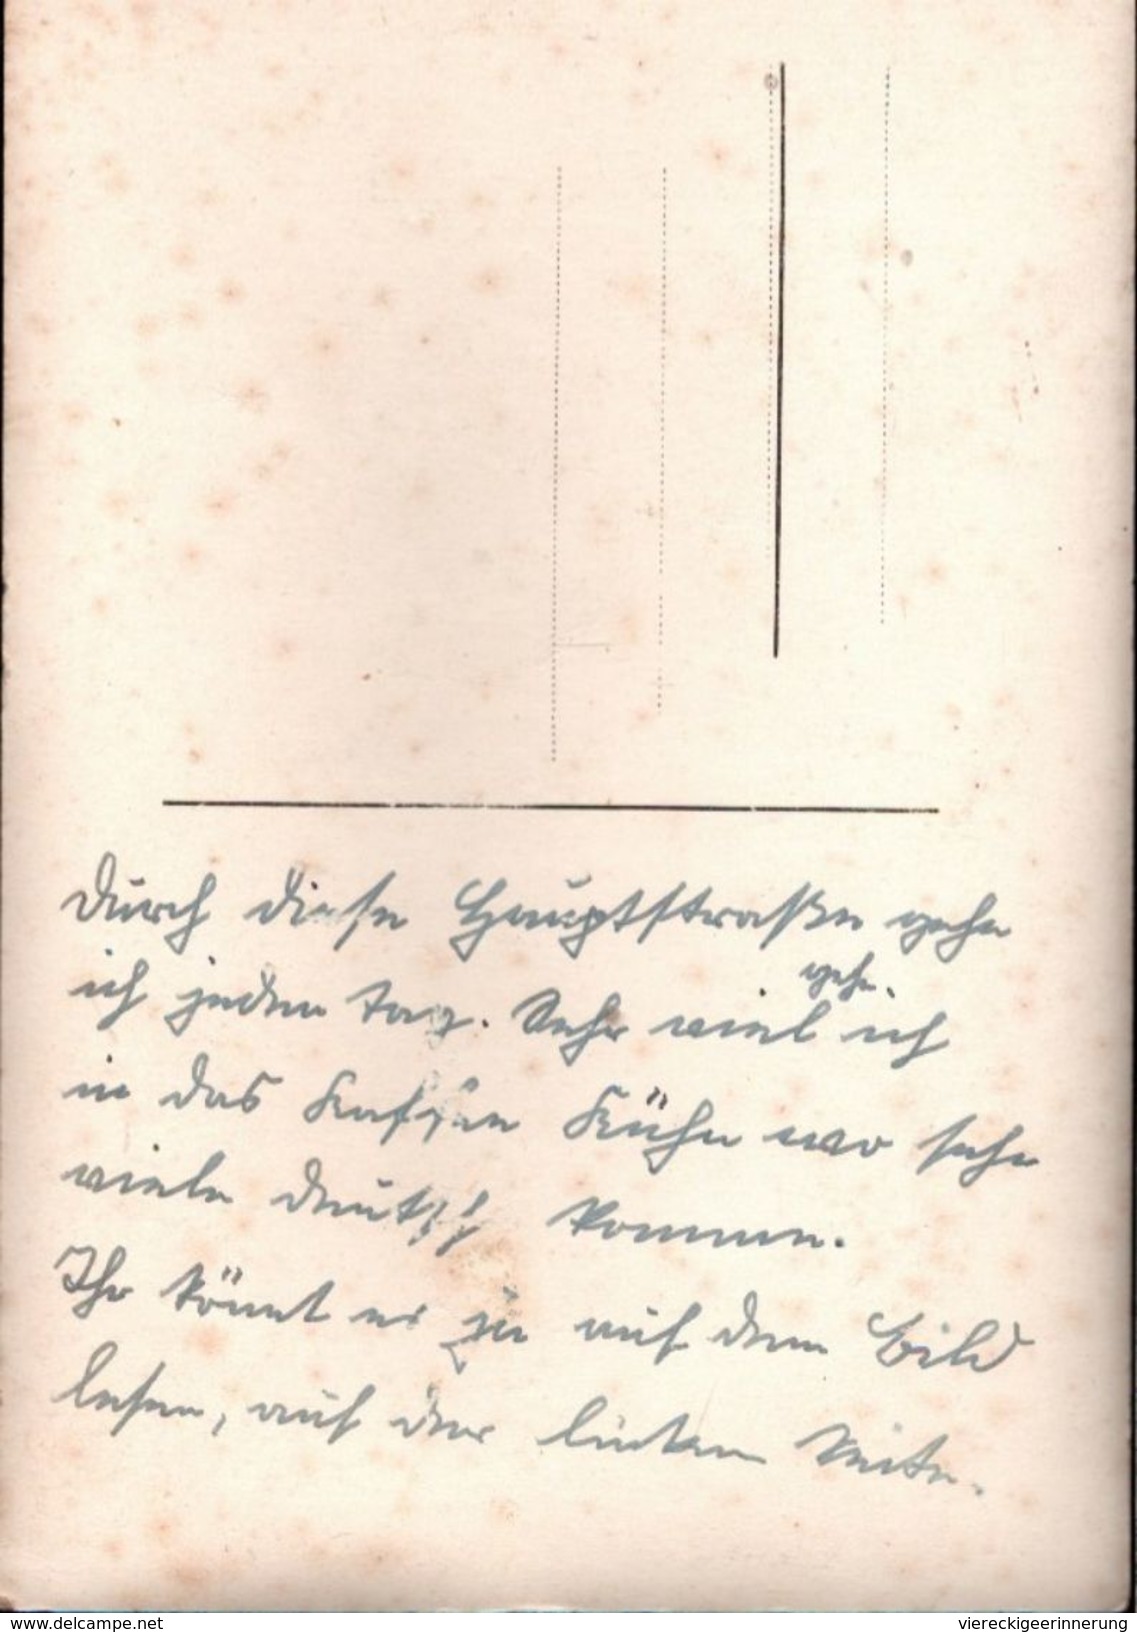 Durch diese Hauptstraße gehe
ich jeden Tag. Sehr viel gehe ich
in das Kaffee Kühn wo sehr
viele deutsch kommen.
Ihr könnt es ja auf dem Bild
lesen, auf der linken Seite.
www.delcampe.net
viereckigeerinnerung